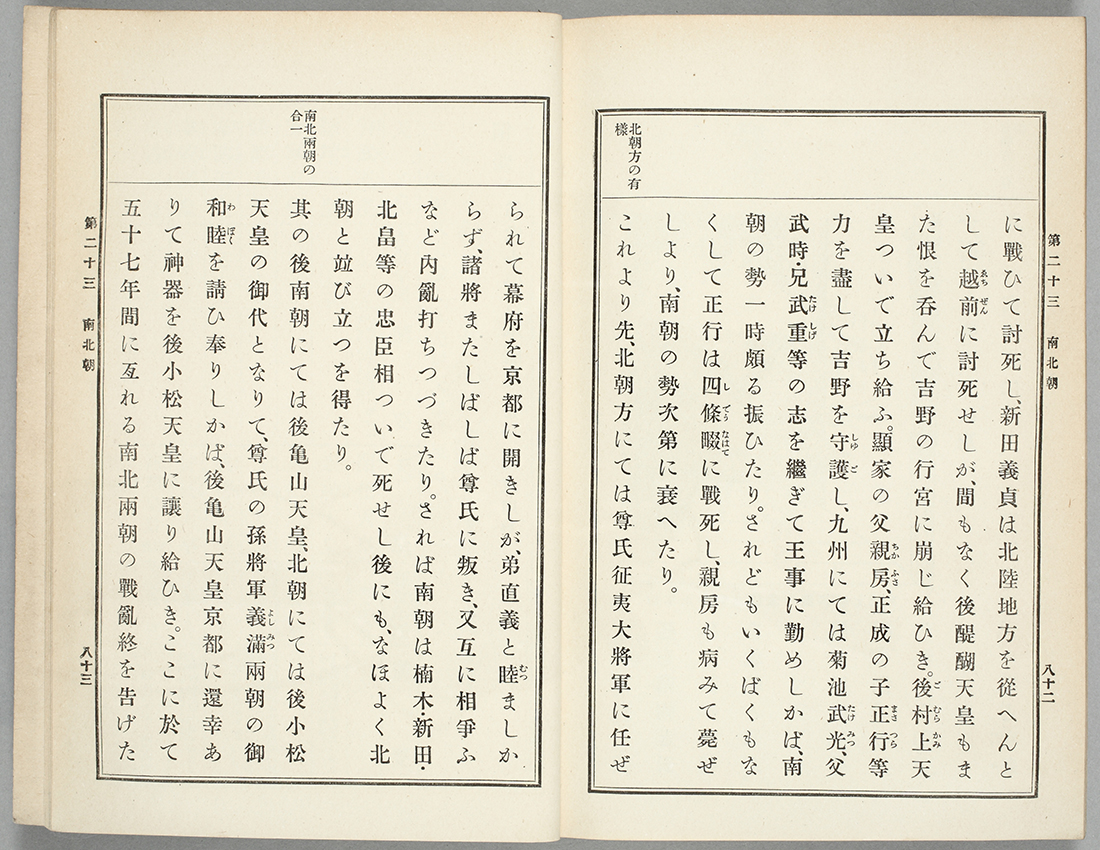 第二十三 南北朝
八十二
北朝方の有
樣
に戰ひて討死し、新田義貞は北陸地方を從へんと
して越前に討死せしが、間もなく後醍醐天皇もま
た恨を呑んで吉野の行宮に崩じ給ひき。後村上天
皇ついで立ち給ふ。顯家の父親房、正成の子正行等
力を盡して吉野を守護し、九州にては菊池武光、父
武時・兄武重等の志を繼ぎて王事に勤めしかば、南
朝の勢一時頗る振ひたり。されどもいくばくもな
くして正行は四條畷に戰死し、親房も病みて薨ぜ
しより、南朝の勢次第に衰へたり。
これより先、北朝方にては尊氏征夷大將軍に任ぜ
られて幕府を京都に開きしが、弟直義と睦ましか
らず、諸將またしばしば尊氏に叛き、又互に相爭ふ
など內亂打ちつづきたり。されば南朝は楠木・新田・
北畠等の忠臣相ついで死せし後にも、なほよく北
朝と竝び立つを得たり。
南北兩朝の
合一
其の後南朝にては後亀山天皇、北朝にては後小松
天皇の御代となりて、尊氏の孫將軍義滿兩朝の御
和睦を請ひ奉りしかば、後亀山天皇京都に還幸あ
りて神器を後小松天皇に讓り給ひき。ここに於て
五十七年間に亙れる南北兩朝の戰亂終を告げた
第二十三 南北朝
八十三